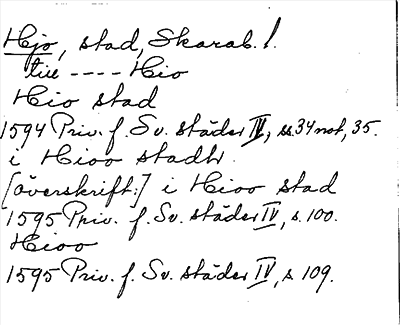 Hjo, stad, Skarab. l.
till ---- Hio
Hio stad
1594 Priv. f. Sv. städer IV, ss. 34 not, 35.
i Hioo stadh
[överskrift:] i Hioo stad
1595 Priv. f. Sv. städer IV, s. 100.
Hioo
1595 Priv. f. Sv. städer IV, s 109.